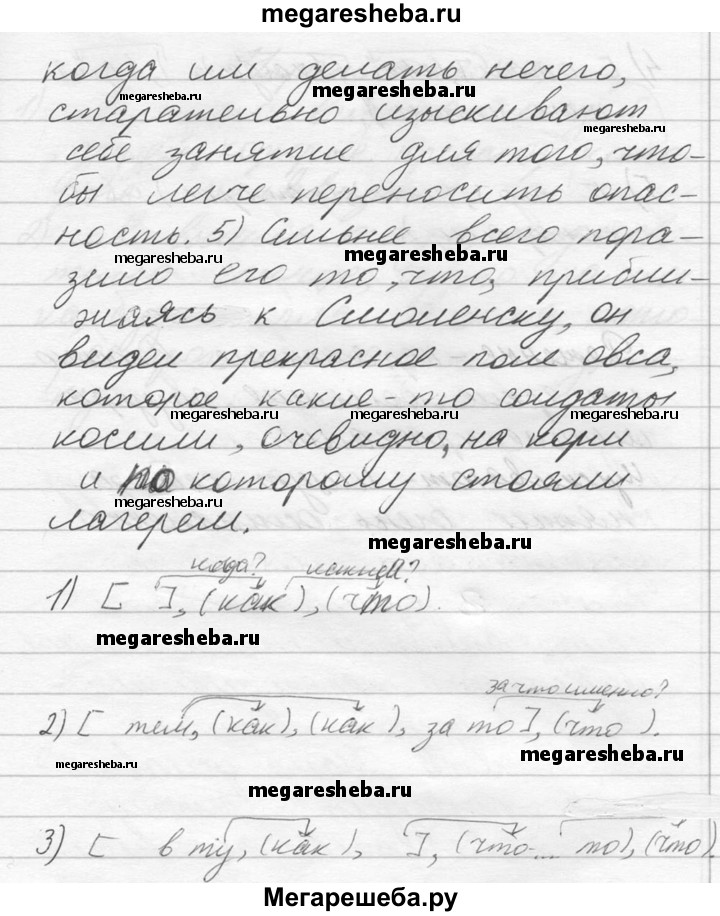 megaresheba.ru
когда им делать нечего,
megaresheba.ru megaresheba.ru
старательно изыскивают
megaresheba.ru
себе занятие для того, что-
бы легче переносить опас-
ность. 5) Сильнее всего пора-
megaresheba.ru megaresheba.ru
зило его то, что, прибли-
жаясь к Смоленску, он
видел прекрасное поле овса,
которое какие-то солдаты
megaresheba.ru megaresheba.ru megaresheba.ru
косили, очевидно, на корм
и по которому стояли
megaresheba.ru
лагерем.
megaresheba.ru
когда? какией?
1) [ ], (как ), (что).
megaresheba.ru
за что именно?
2) [ тем, (как), (как ), за то], (что ).
megaresheba.ru
megaresheba.ru
3) [ в ту, (как ), ], (что... то), (что).
Мегарешеба.ру